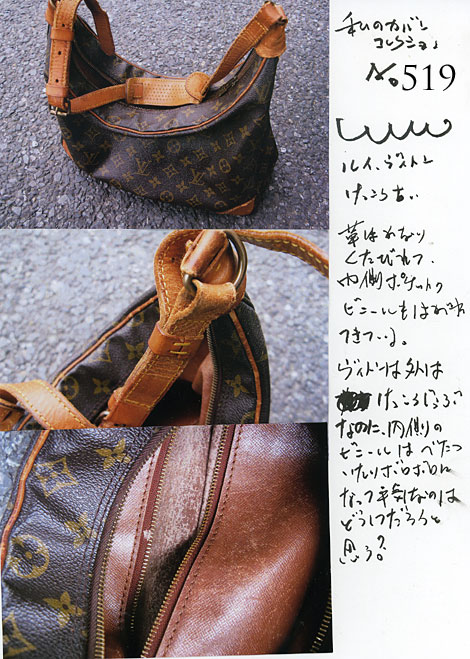 私のカバン
コレクション
No 519
ルイ・ヴィトン
けっこう古い
革はかなり
くたびれて、
内側ポケットの
ビニールもはがれ
てきている。
ヴィトンは外は
けっこうじょうぶ
なのに、内側の
ビニールは べたつ
いたりボロボロに
なって平気なのは
どうしてだろうと
思う?